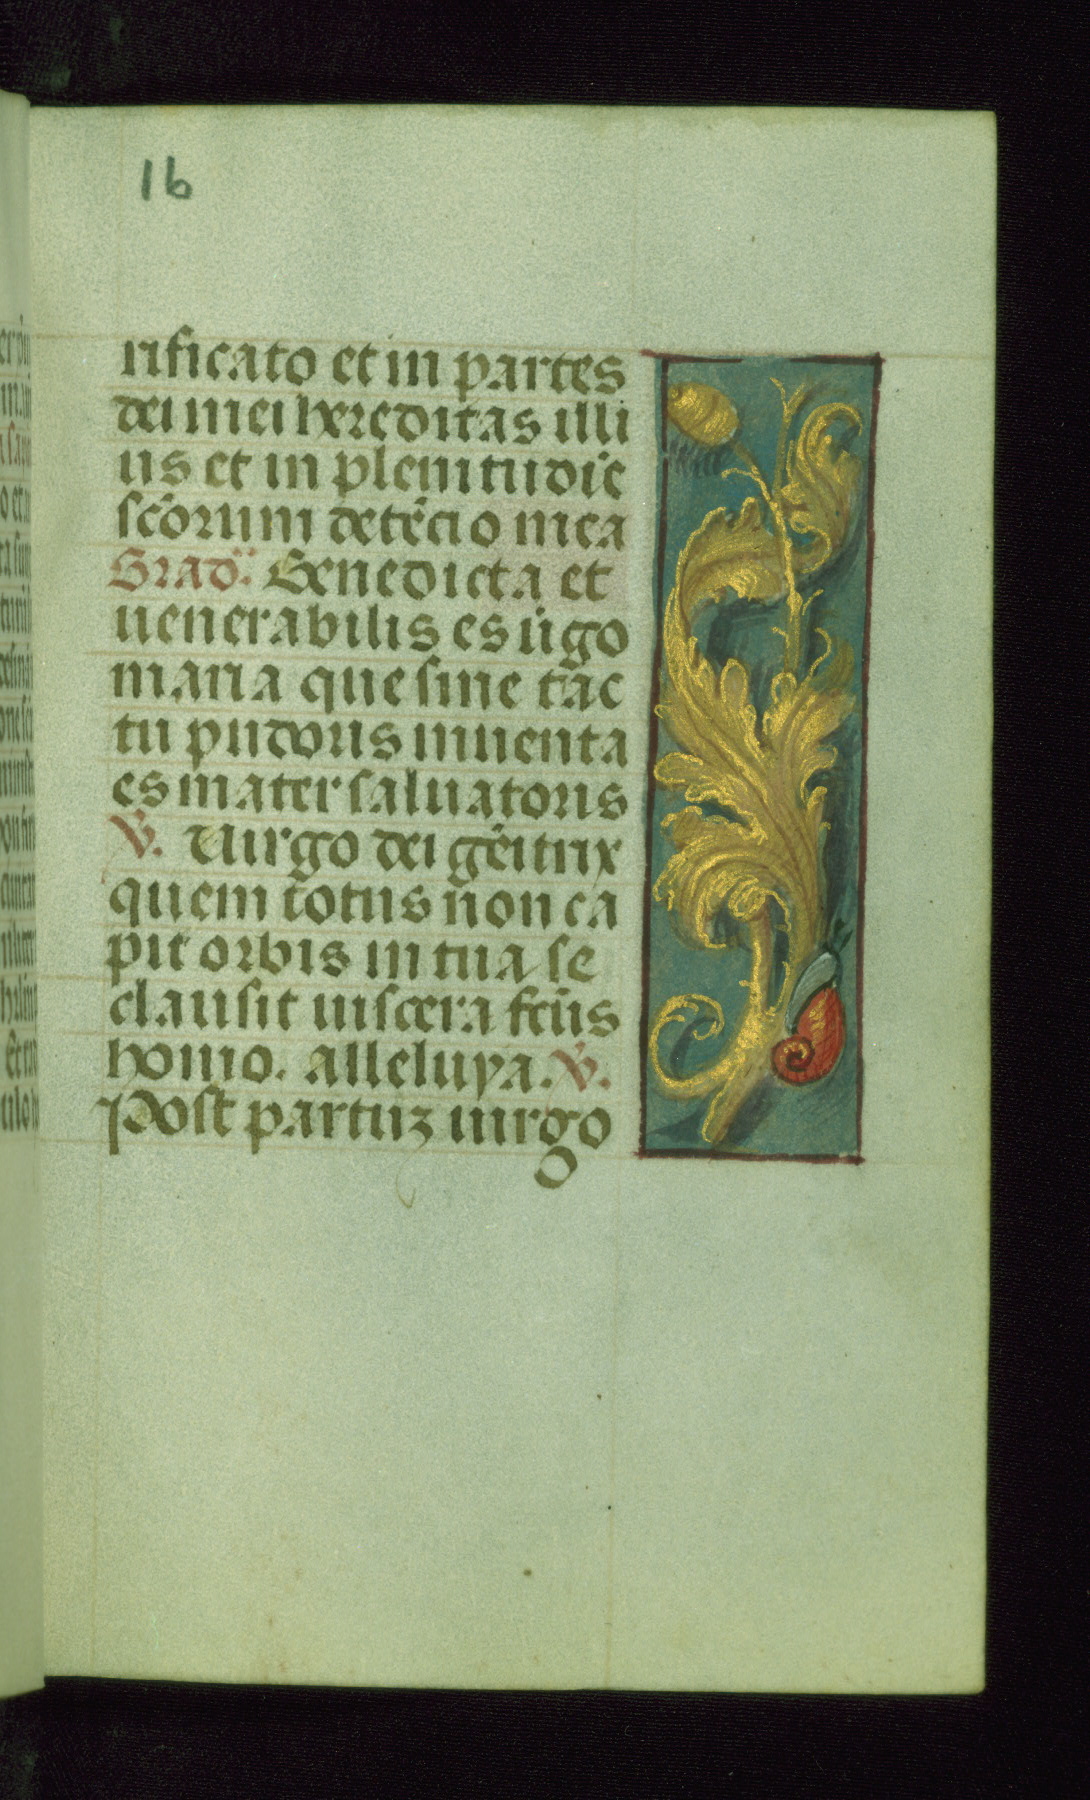 16
rificato et in partes
dei mei hereditas illi
us et in plenitudie
scōrum detētio mea
Grad̄. Benedicta et
uenerabilis es ūgo
maria que sine tac
tu pudoris inuenta
es mater saluatoris
℣. Uirgo dei gēitrix
quem totus non ca
pit orbis in tua se
clausit uiscera fcūs
homo. alleluya. ℣.
Post partuȝ uirgo